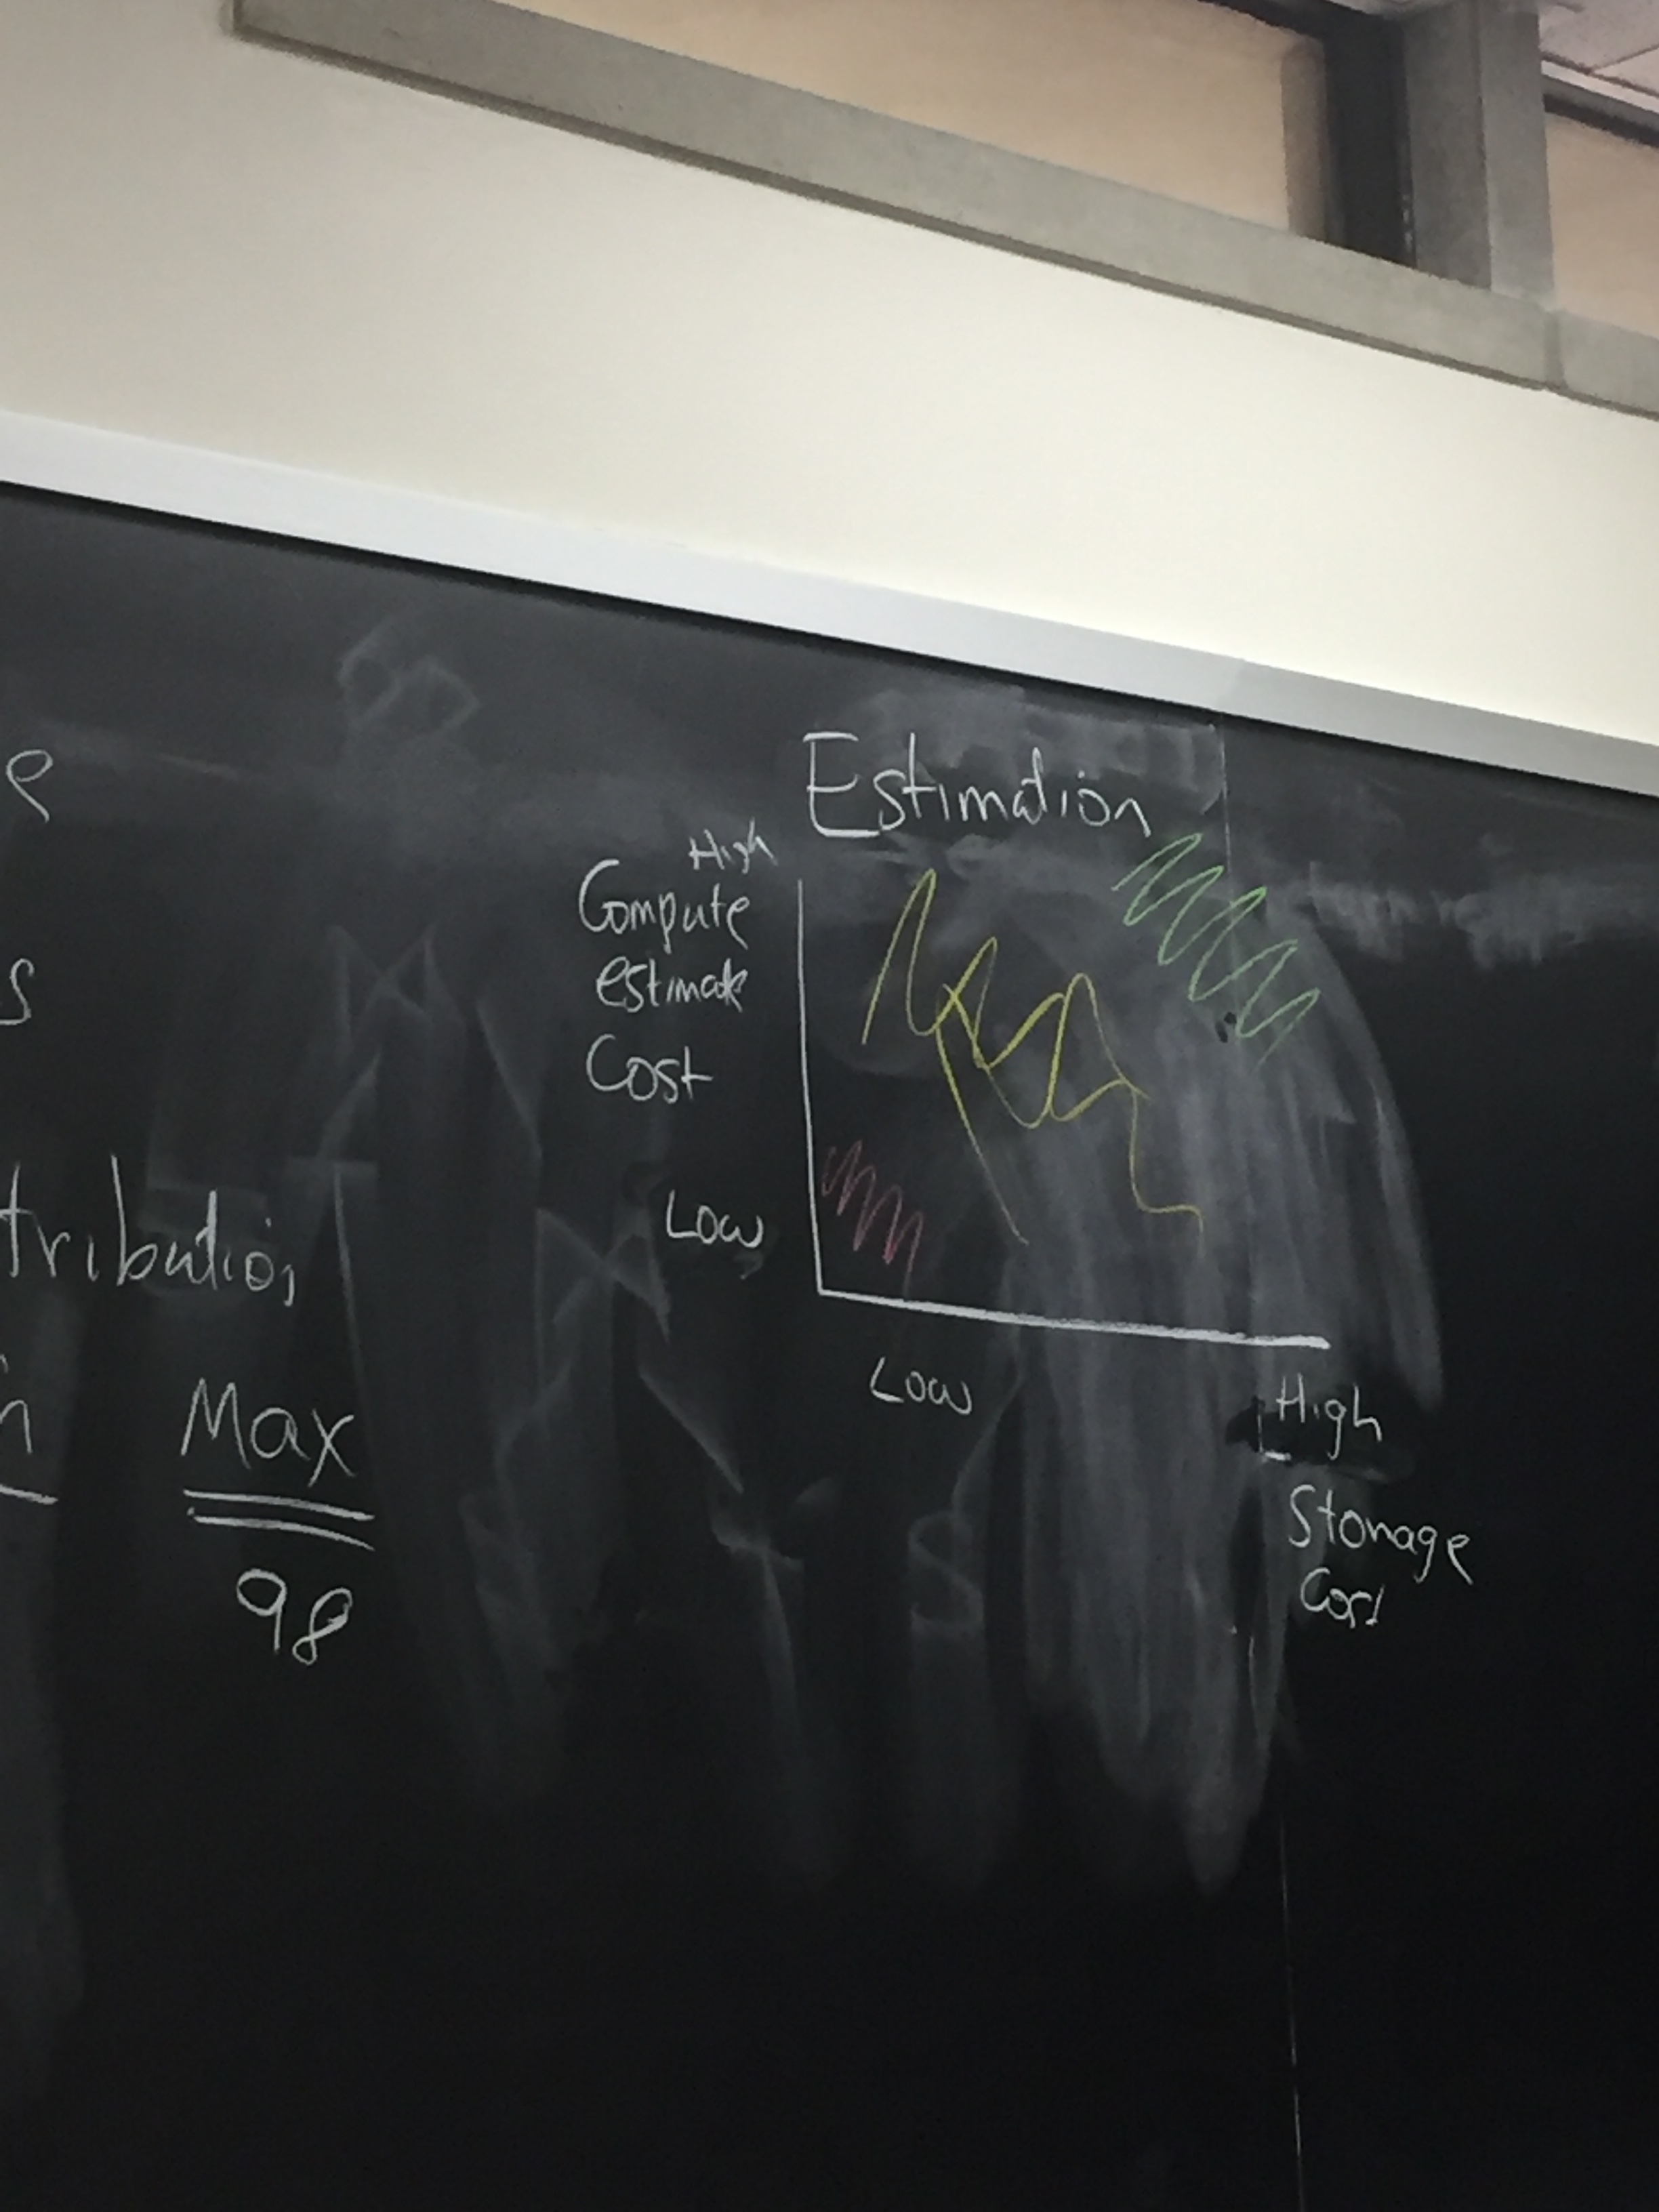 e
s
tribution
n
Max
98
Estimation
High
Compute
estimate
Cost
Low
Low
High
Storage
Cost